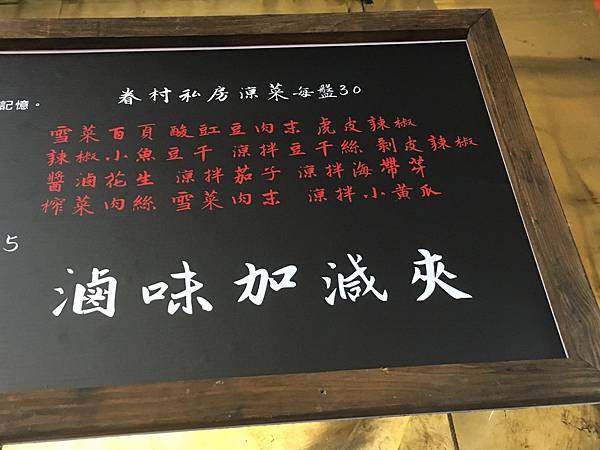 記憶。
眷村私房涼菜每盤30
雪菜百頁 酸豇豆肉末 虎皮辣椒
辣椒小魚豆干 涼拌豆干絲 剝皮辣椒
醬滷花生 涼拌茄子 涼拌海帶芽
榨菜肉絲 雪菜肉末 涼拌小黃瓜
5
滷味加減夾